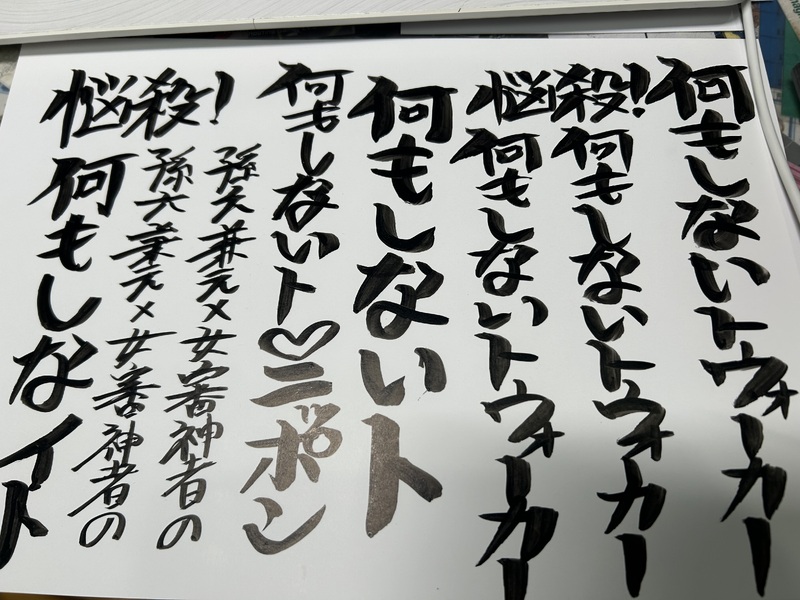 何もしないトウォーカー
悩殺!何もしないトウォカー
何もしないトウォーカー
何もしないト
何もしないト♡ニッポン
孫六兼元×女審神者の
孫六兼元×女審神者の
悩殺!
何もしなイト